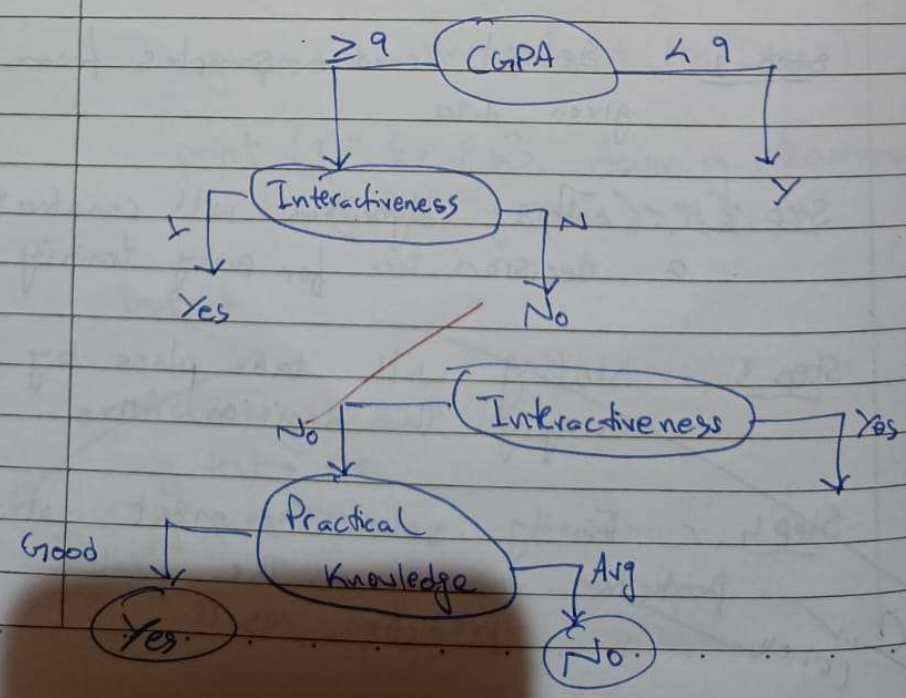 ≥ 9 CGPA < 9
Interactiveness Y
Y N
Yes No
Interactiveness
No Yes
Practical
Knowledge
Good Avg
Yes No